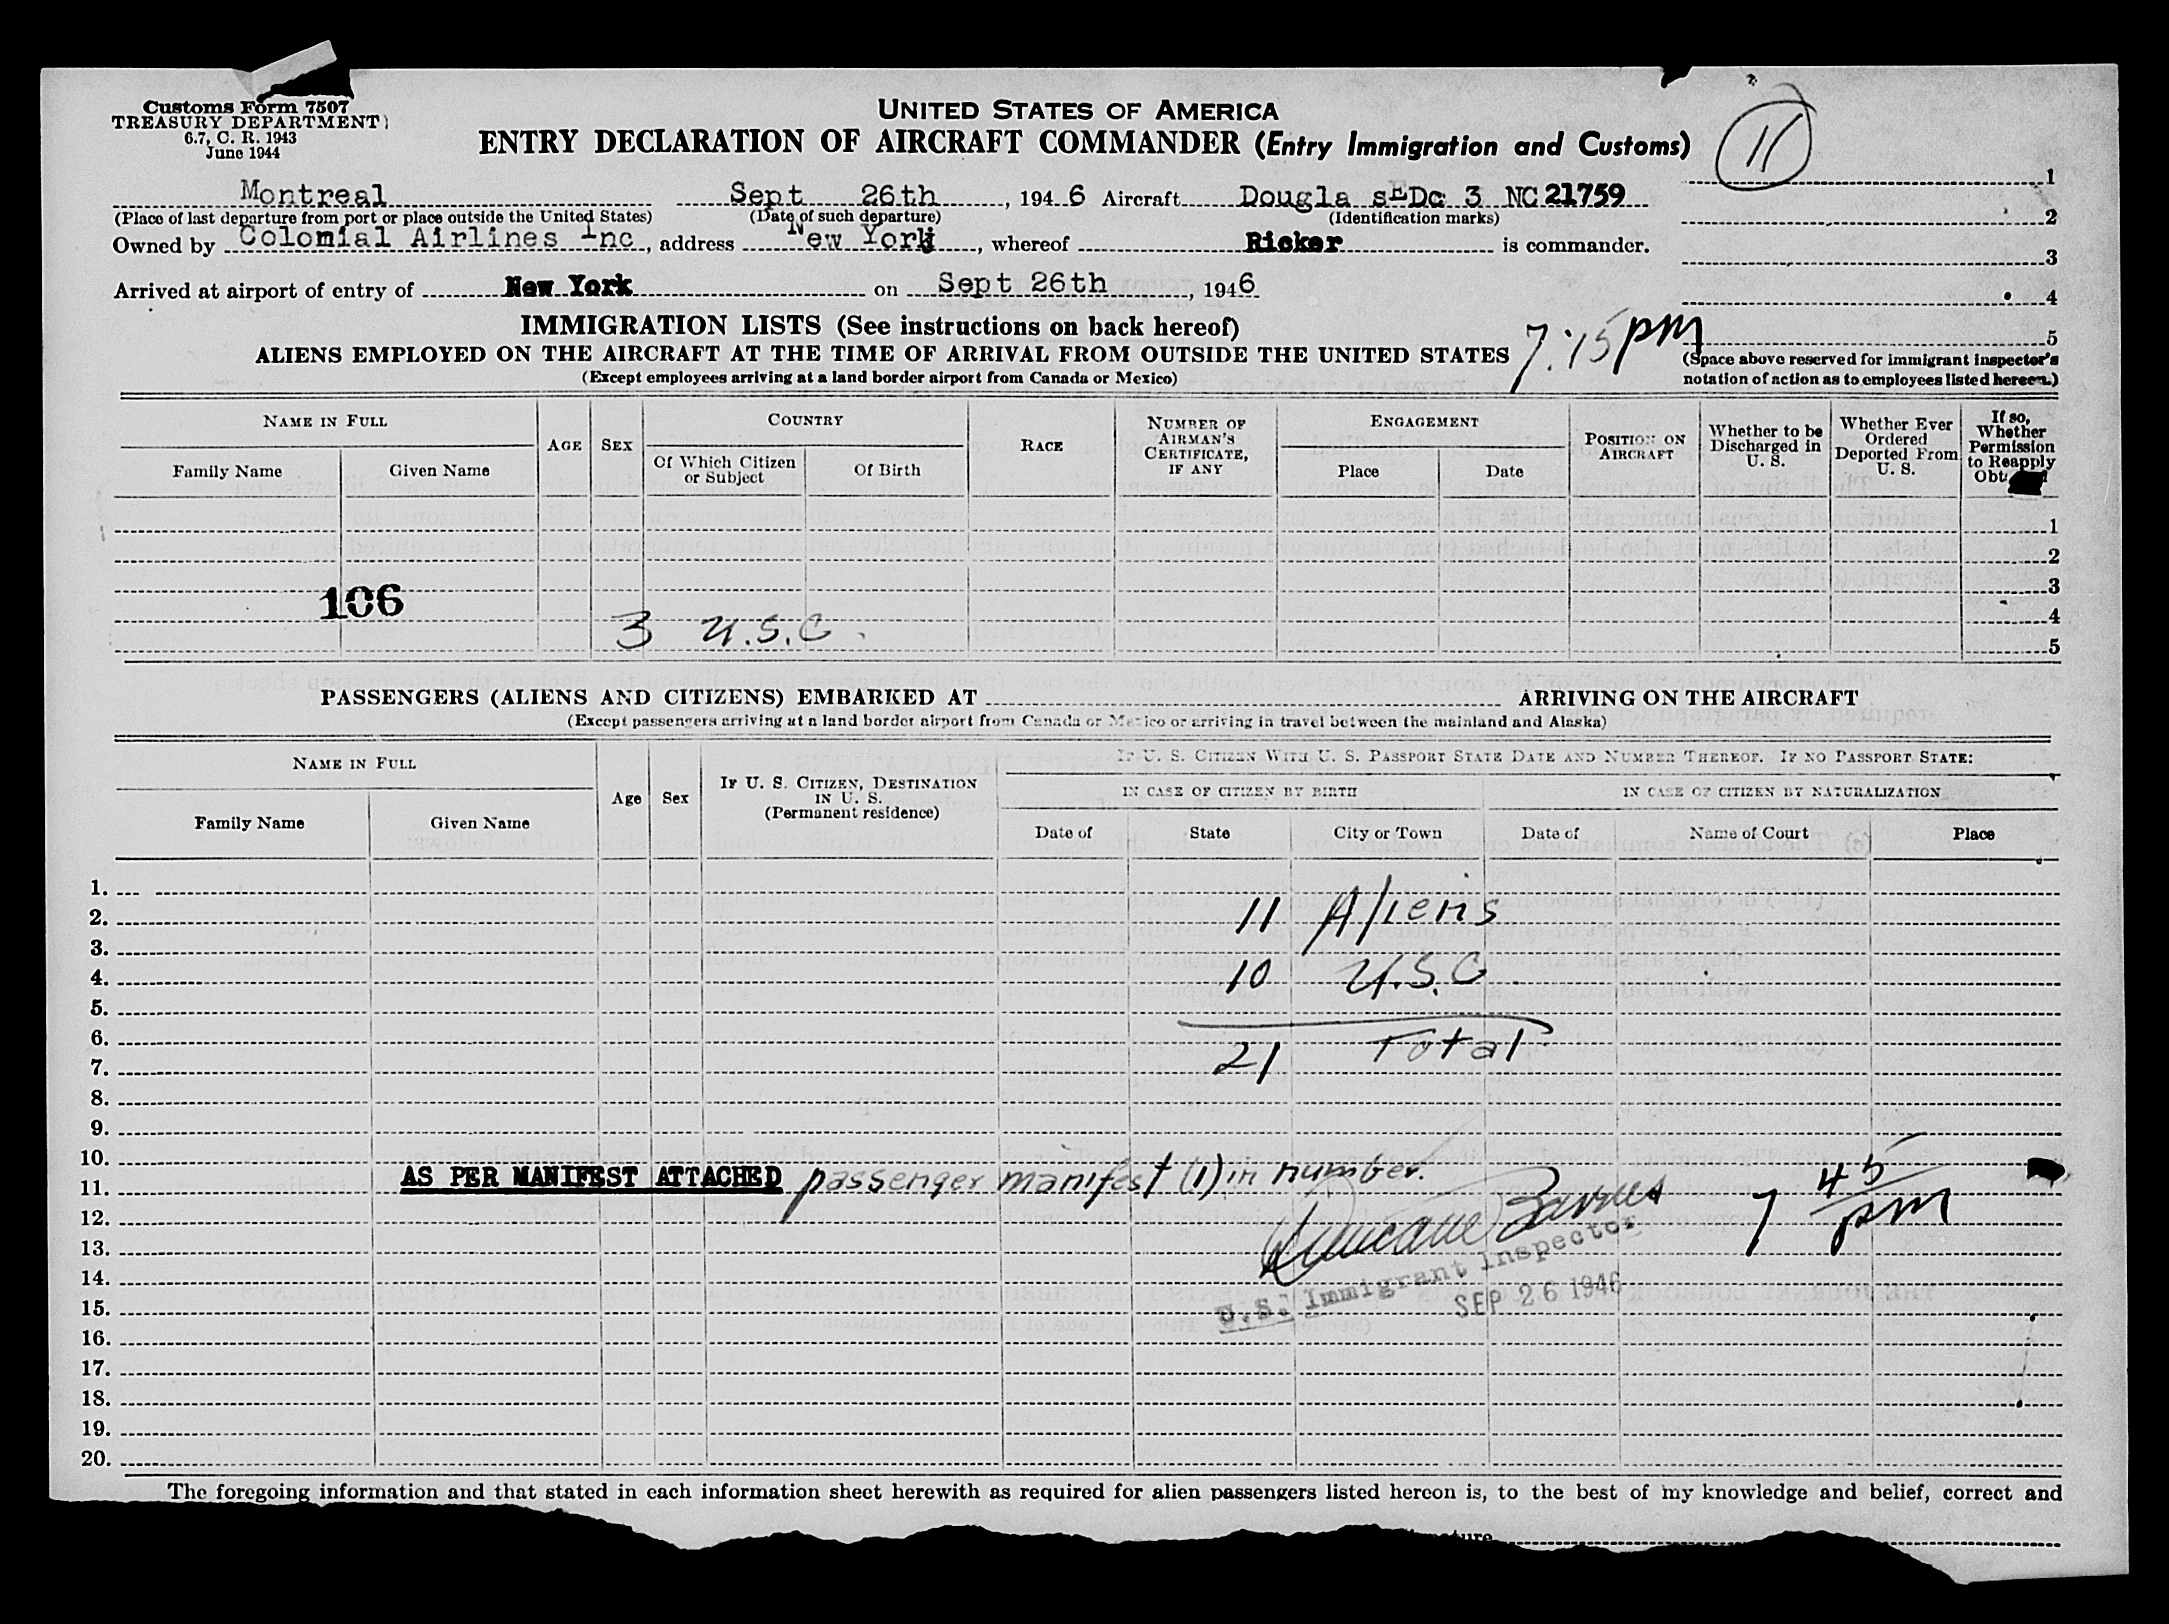 Customs Form 7507
TREASURY DEPARTMENT
6.7, C. R. 1943
June 1944
UNITED STATES OF AMERICA
ENTRY DECLARATION OF AIRCRAFT COMMANDER (Entry Immigration and Customs)
11
Montreal Sept 26th, 1946 Aircraft Dougla s Dc 3 NC 21759
(Place of last departure from port or place outside the United States) (Date of such departure) (Identification marks)
Owned by Colonial Airlines Inc, address New York, whereof Ricker is commander.
Arrived at airport of entry of New York on Sept 26th, 1946
1
2
3
4
5
IMMIGRATION LISTS (See instructions on back hereof)
7:15 pm
ALIENS EMPLOYED ON THE AIRCRAFT AT THE TIME OF ARRIVAL FROM OUTSIDE THE UNITED STATES
(Except employees arriving at a land border airport from Canada or Mexico)
(Space above reserved for immigrant inspector's
notation of action as to employees listed hereon.)
NAME IN FULL AGE SEX COUNTRY RACE NUMBER OF AIRMAN'S CERTIFICATE, IF ANY ENGAGEMENT POSITION ON AIRCRAFT Whether to be Discharged in U. S. Whether Ever Ordered Deported From U. S. If so, Whether Permission to Reapply
Family Name Given Name Of Which Citizen or Subject Of Birth Place Date
1
2
3
4
5
106
3 U.S.C.
PASSENGERS (ALIENS AND CITIZENS) EMBARKED AT ARRIVING ON THE AIRCRAFT
(Except passengers arriving at a land border airport from Canada or Mexico or arriving in travel between the mainland and Alaska)
NAME IN FULL Age Sex IF U. S. CITIZEN, DESTINATION IN U. S. (Permanent residence) IF U. S. CITIZEN WITH U. S. PASSPORT STATE DATE AND NUMBER THEREOF. IF NO PASSPORT STATE:
IN CASE OF CITIZEN BY BIRTH IN CASE OF CITIZEN BY NATURALIZATION
Family Name Given Name Date of State City or Town Date of Name of Court Place
1.
2. 11 Aliens
3.
4. 10 U.S.C.
5.
6.
7. 21 Total
8.
9.
10.
11. AS PER MANIFEST ATTACHED passenger manifest (1) in number.
12. 7 45 pm
13.
14. U.S. Immigrant Inspector
15. SEP 26 1946
16.
17.
18.
19.
20.
The foregoing information and that stated in each information sheet herewith as required for alien passengers listed hereon is, to the best of my knowledge and belief, correct and